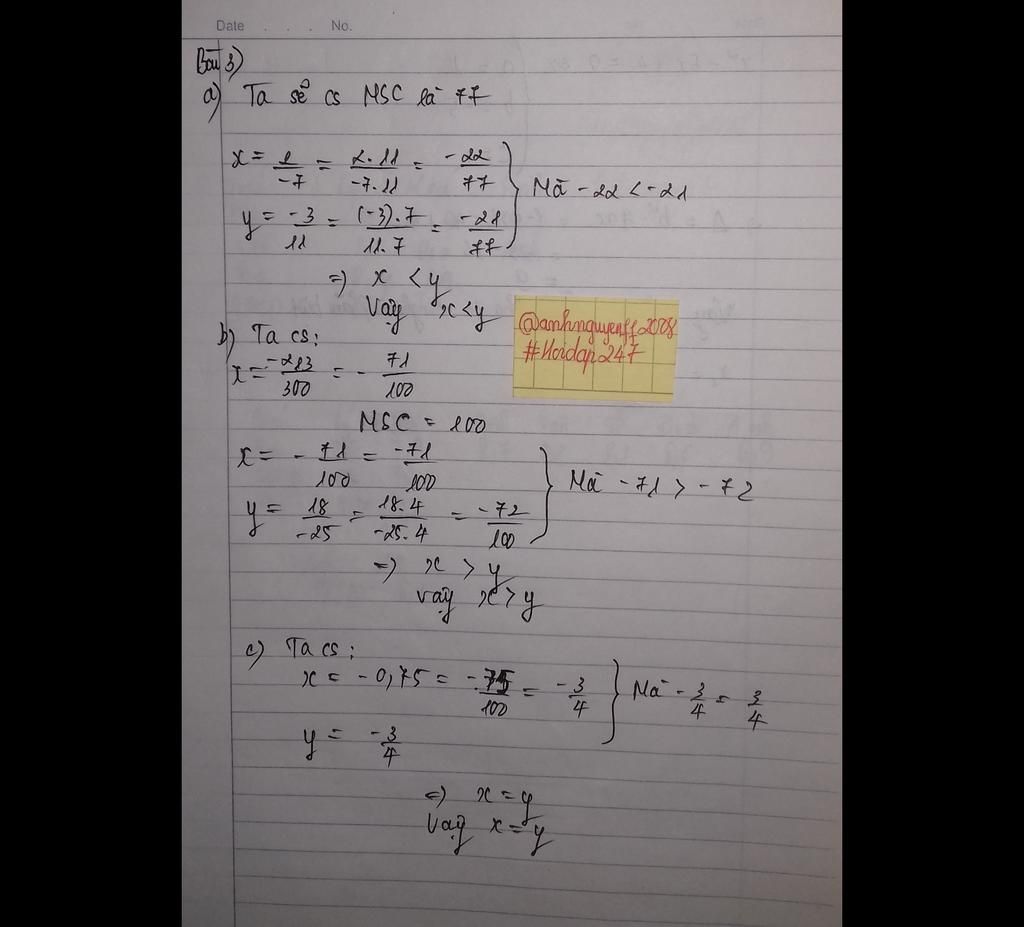 Date . . . No.
Bài 3)
a) Ta sẽ có MSC là 77
x = 2/-7 = 2.11/-7.11 = -22/77
y = -3/11 = (-3).7/11.7 = -21/77 } Mà -22 < -21
=> x < y
Vậy x < y
@anhnguyenff2008
#Hoidap247
b) Ta có:
x = -213/300 = - 71/100
MSC = 100
x = - 71/100 = -71/100
y = 18/-25 = 18.4/-25.4 = -72/100 } Mà -71 > -72
=> x > y
Vậy x > y
c) Ta có:
x = -0,75 = -75/100 = -3/4
y = -3/4 } Mà -3/4 = 3/4
=> x = y
Vậy x = y